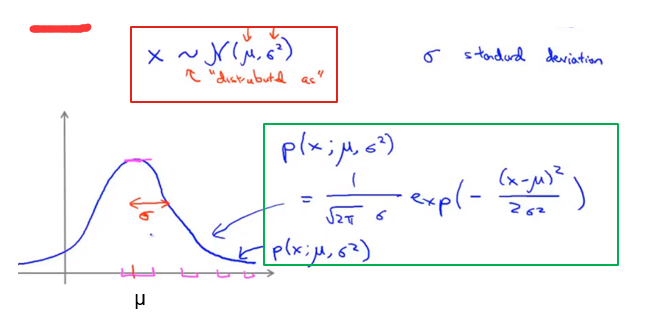 x ~ N(μ, σ²)
"distributed as"
σ standard deviation
p(x; μ, σ²)
= 1/(√2π σ) exp(- (x-μ)²/2σ²)
σ
p(x; μ, σ²)
μ